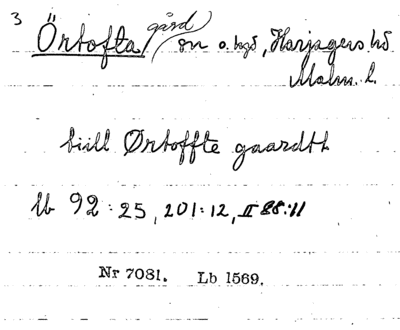 3 Örtofta gård sn o. bgd, Harjagers hd
Malm. l.
tiill Ørtoffte gaardth
lb 92:25, 201:12, II 88:11
Nr 7081. Lb 1569.